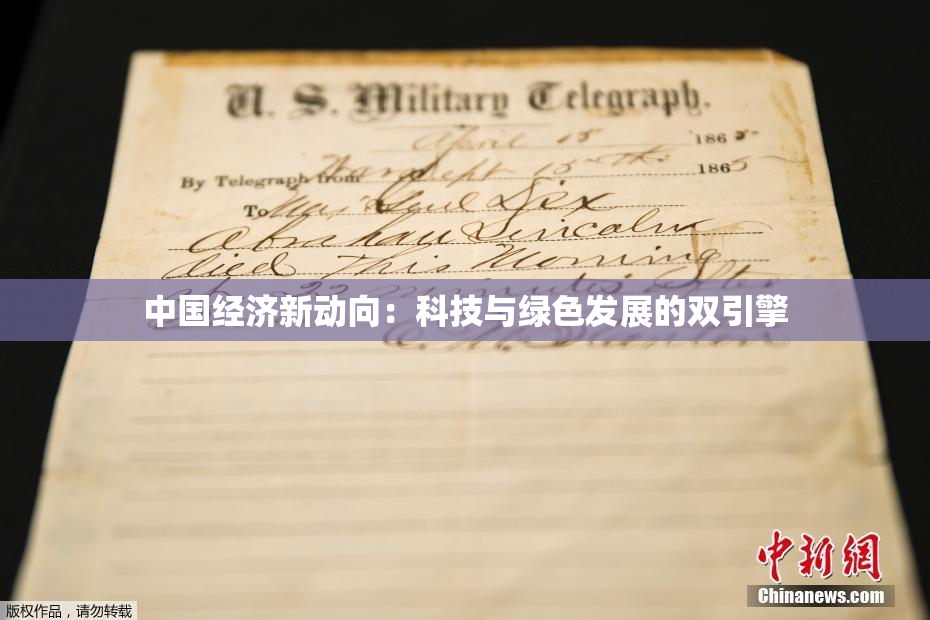 U. S. Military Telegraph.
April 15 1865
By Telegraph from War Dept 15th 1865
To Maj Genl Dix
Abraham Lincoln
died This Morning
22 minutes after
中国经济新动向：科技与绿色发展的双引擎
E. M. Stanton
中新网
Chinanews.com
版权作品，请勿转载